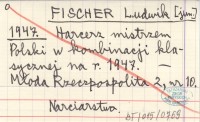 FISCHER Ludwik [jun.]
1947. Harcerz mistrzem
Polski w kombinacji kla-
sycznej na r. 1947. —
Młoda Rzeczpospolita 2, nr 10.
Narciarstwo.
BT/1015/0769